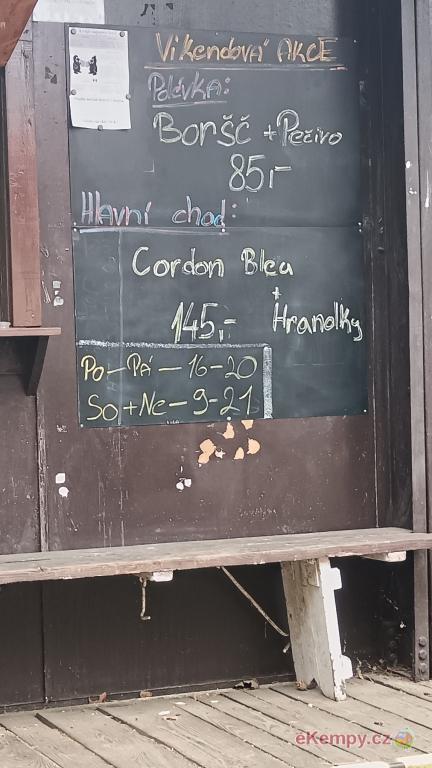 Víkendová AKCE
Polévka:
Boršč + Pečivo
85,-
Hlavní chod:
Cordon Bleu
+
145,- Hranolky
Po - Pá - 16 - 20
So + Ne - 9 - 21
eKempy.cz